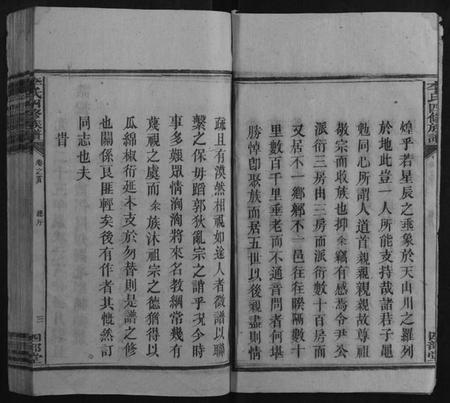 李氏四修族譜
煌乎若星辰之垂象於天山川之羅列
於地此豈一人所能支持哉諸君子黽
勉同心所謂人道首親親親親故尊祖
敬宗而收族也抑余竊有感焉令尹公
派衍三房由三房而派衍數十百房而
又居不一鄉鄉不一邑往在暌隔數十
里數百千里垂老而不通音問者何堪
勝悼卽聚族而居五世以後親盡則情
四部堂
疏且有漠然相視如途人者微譜以聯
繫之保毋蹈郭狄亂宗之誚乎况今時
事多艱眾情洶洶將來名教綱常幾有
蔑視之處而余族沐祖宗之德猶得以
瓜綿椒衍延本支於勿替則是譜之修
也關係良匪輕矣後有作者其慨然訂
同志也夫
昔
李氏四修族譜
卷之首
譜序
三
四部堂